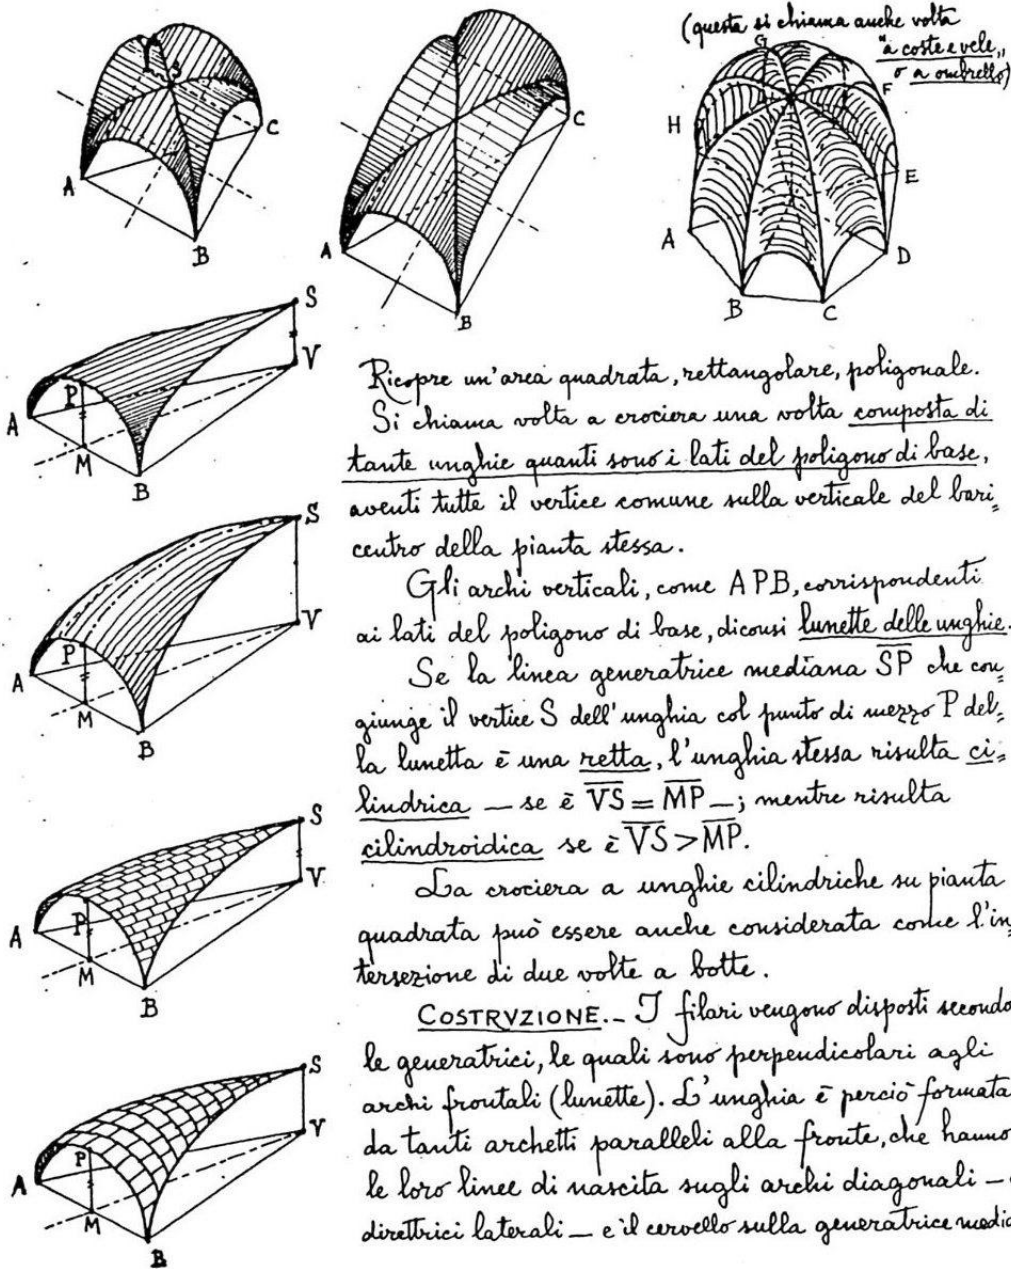 (questa si chiama anche volta
"a coste e vele„
o a ombrello)
S
A
B
C
A
B
C
G
F
H
E
A
D
B
C
S
V
P
A
M
B
S
V
P
A
M
B
S
V
P
A
M
B
S
V
P
A
M
B
Ricopre un'area quadrata, rettangolare, poligonale.
Si chiama volta a crociera una volta composta di
tante unghie quanti sono i lati del poligono di base,
aventi tutte il vertice comune sulla verticale del bari=
centro della pianta stessa.
Gli archi verticali, come APB, corrispondenti
ai lati del poligono di base, diconsi lunette delle unghie.
Se la linea generatrice mediana SP che con=
giunge il vertice S dell'unghia col punto di mezzo P del=
la lunetta è una retta, l'unghia stessa risulta ci=
lindrica — se è VS = MP —; mentre risulta
cilindroidica se è VS > MP.
La crociera a unghie cilindriche su pianta
quadrata può essere anche considerata come l'in=
tersezione di due volte a botte.
COSTRVZIONE._ I filari vengono disposti secondo
le generatrici, le quali sono perpendicolari agli
archi frontali (lunette). L'unghia è perciò formata
da tanti archetti paralleli alla fronte, che hanno
le loro linee di nascita sugli archi diagonali —
direttrici laterali — e il cervello sulla generatrice media